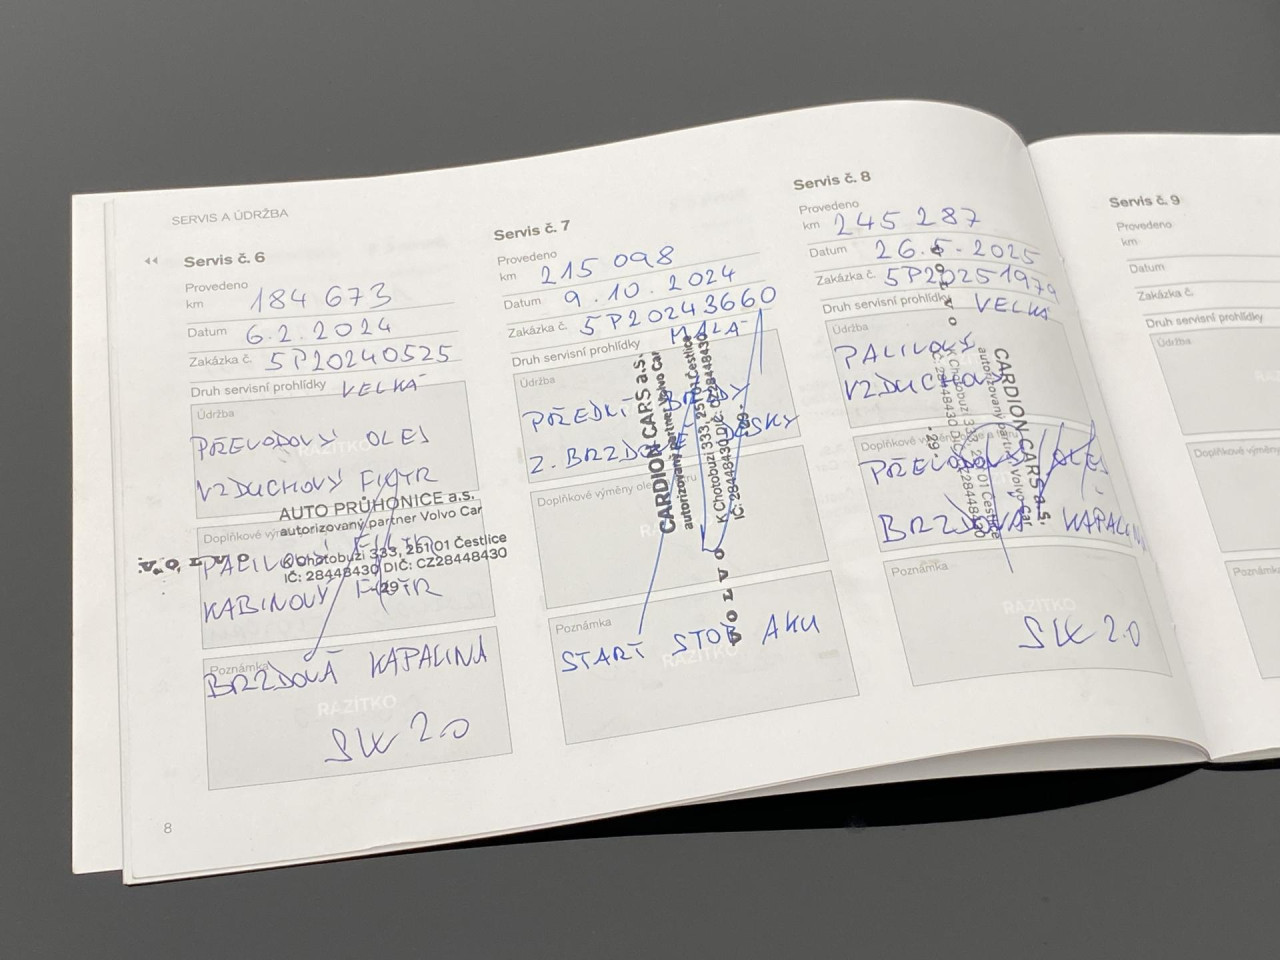 SERVIS A ÚDRŽBA
Servis č. 6
Provedeno
km 184 673
Datum 6.2.2024
Zakázka č. 5P20240525
Druh servisní prohlídky VELKÁ
Údržba
PŘEVODOVÝ OLEJ
VZDUCHOVÝ FILTR
AUTO PRŮHONICE a.s.
autorizovaný partner Volvo Car
K Chotobuzi 333, 251 01 Čestlice
IČ: 28448430 DIČ: CZ28448430
-29-
VOLVO
PALIVOVÝ FILTR
KABINOVÝ FILTR
Poznámka
BRZDOVÁ KAPALINA
RAZÍTKO
SW 2.0
8
Servis č. 7
Provedeno
km 215 098
Datum 9.10.2024
Zakázka č. 5P20243660
Druh servisní prohlídky MALÁ
Údržba
PŘEDNÍ BRZDY
Z. BRZDOVÉ DESKY
CARDION CARS a.s.
autorizovaný partner Volvo Car
K Chotobuzi 333, 251 01 Čestlice
IČ: 28448430 DIČ: CZ28448430
-29-
VOLVO
Poznámka
START STOP AKU
RAZÍTKO
Servis č. 8
Provedeno
km 245 287
Datum 26.5.2025
Zakázka č. 5P20251979
Druh servisní prohlídky VELKÁ
Údržba
PALIVOVÝ
VZDUCHOVÝ
CARDION CARS a.s.
autorizovaný partner Volvo Car
K Chotobuzi 333, 251 01 Čestlice
IČ: 28448430 DIČ: CZ28448430
-29-
VOLVO
PŘEVODOVÝ OLEJ
BRZDOVÁ KAPALINA
Poznámka
RAZÍTKO
SW 2.0
Servis č. 9
Provedeno
km
Datum
Zakázka č.
Druh servisní prohlídky
Údržba
Doplňkové výměny
Poznámka